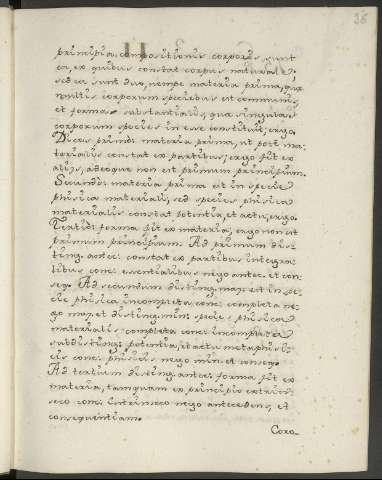 36
principia compositionis corporis sunt
ea, ex quibus constat corpus naturale;
sed ea sunt duo, nempe materia prima, quæ
multis corporum speciebus est communis,
et forma substantialis, quæ singulas
corporum species in esse constituit; ergo.
Dices primò materia prima, ut pote ma-
terialis constat ex partibus; ergo fit ex
aliis, adeoque non est primum principium.
Secundò materia prima est in specie
phisica materiali, sed species phisica
materialis constat potentia, et actu, ergo.
Tertiò forma fit ex materia, ergo non est
primum principium. Ad primum dis-
ting. antec: constat ex partibus integra-
libus conc: essentialibus nego antec. et con-
seq. Ad secundum disting. maj: est in spe-
cie phisica incompleta conc: completa ne-
go maj. et disting. min: species phisica
materialis completa conc: incompleta
subdisting: potentia, et actu metaphisi-
cis conc: phisicis nego min: et conseq.
Ad tertium disting. antec: forma fit ex
materia, tamquam ex principio extrin-
seco conc: intrinseco nego antecedens, et
consequentiam.
Coro-